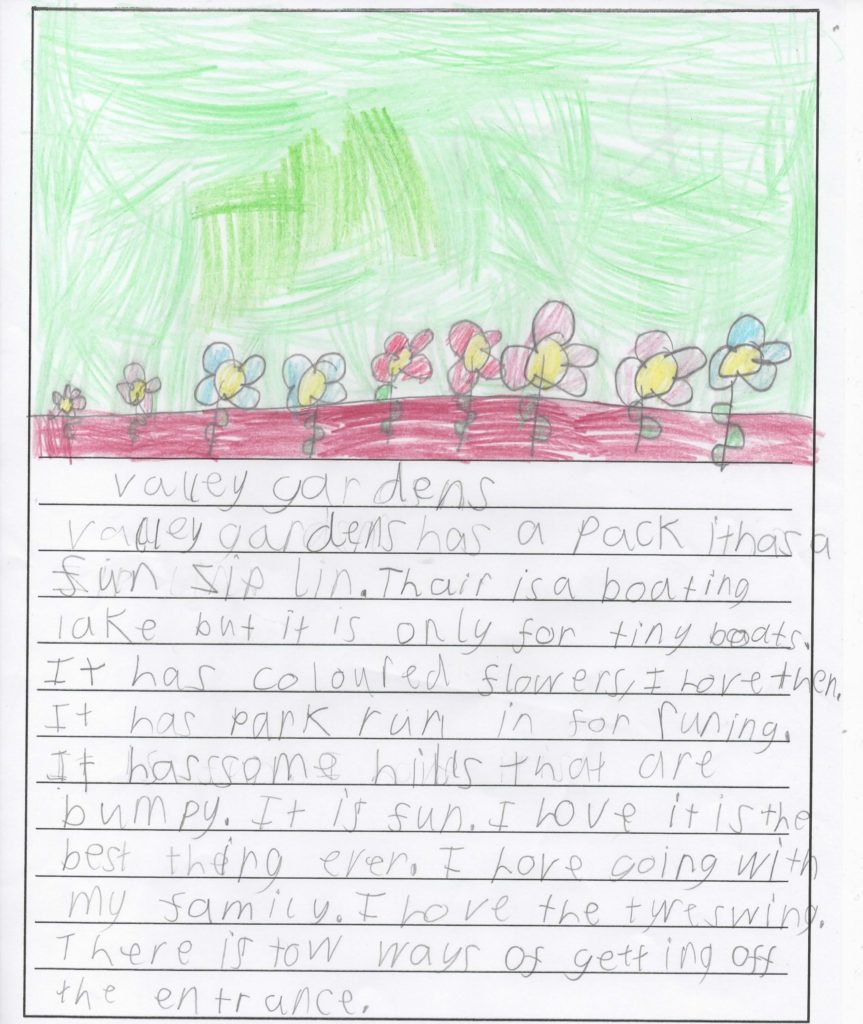 valley gardens
valley gardens has a pack it has a
fun zip lin. Thair is a boating
lake but it is only for tiny boats.
It has coloured flowers, I love then.
It has park run in for runing.
It has some hills that are
bumpy. It is fun. I love it is the
best thing ever. I love going with
my family. I love the tyreswing.
There is tow ways of getting off
the entrance.